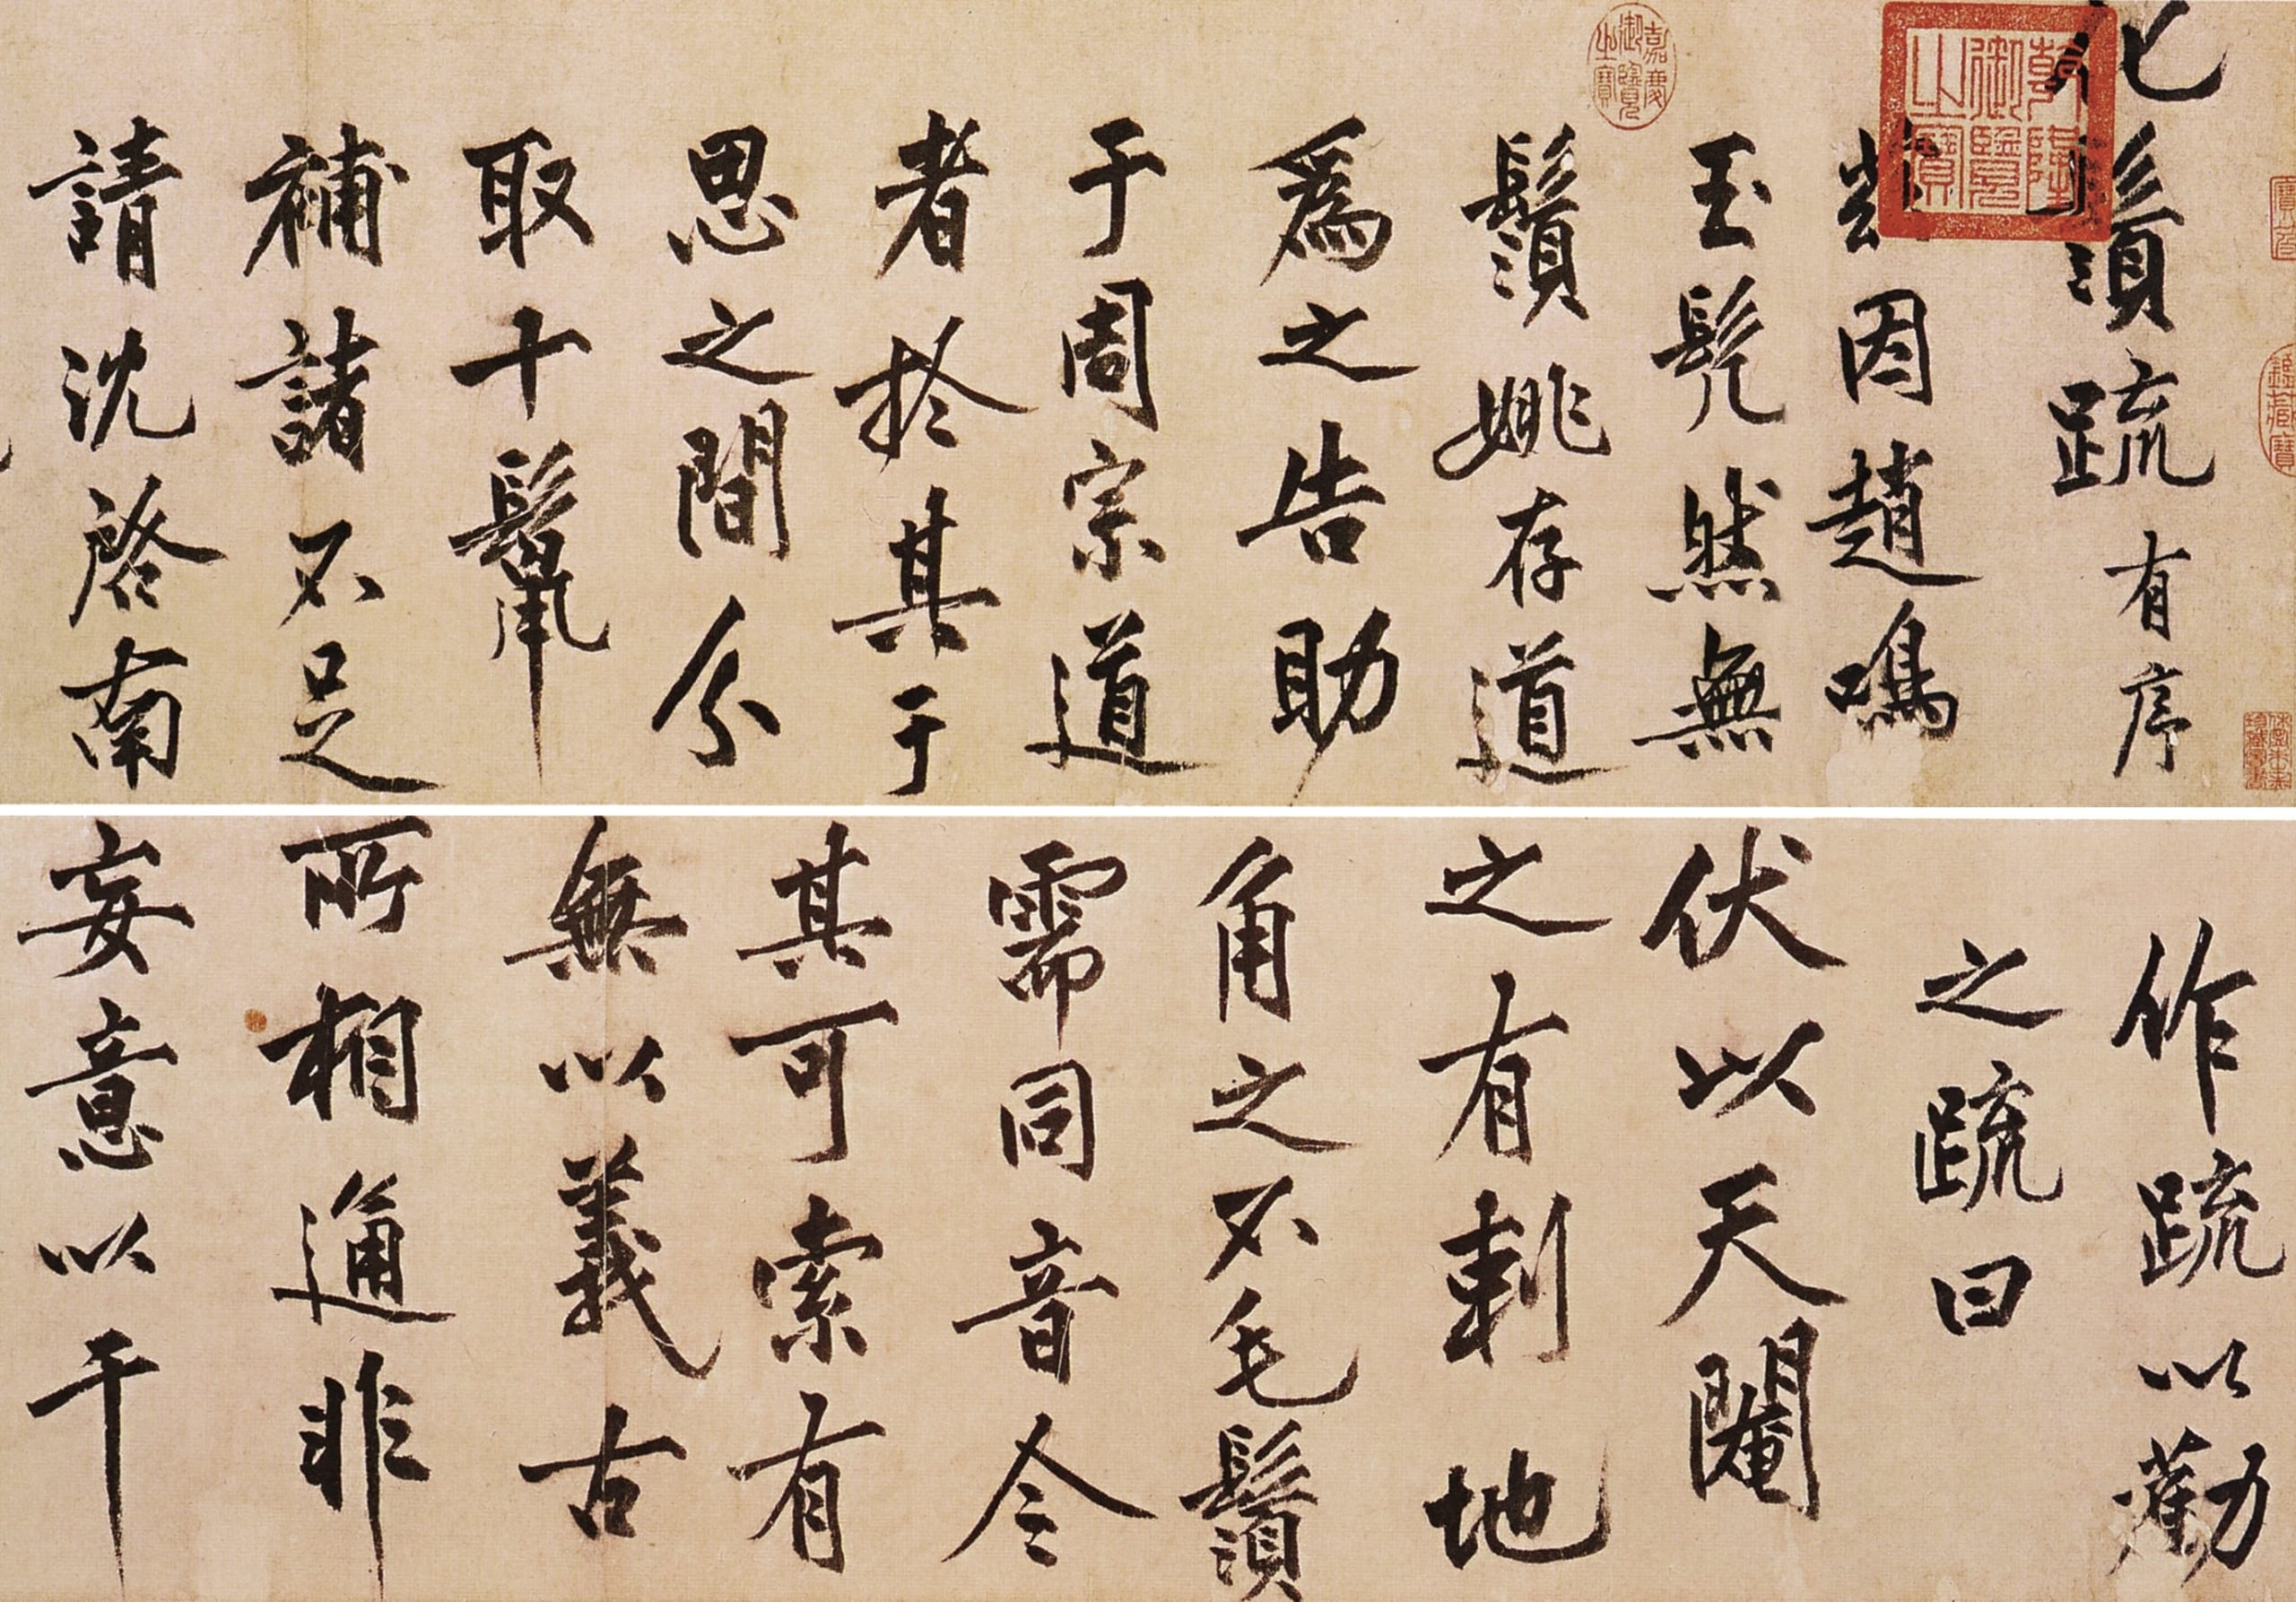 化鬚疏有序
兹因趙鳴
玉髡然無
鬚姚存道
爲之告助
于周宗道
者於其于
思之間分
取十鬣
補諸不足
請沈啓南
作疏以勸
之疏曰
伏以天閹
之有刺地
角之不毛鬚
需同音今
其可索有
無以義古
所相通非
妄意以干
乾隆御覽之寶
嘉慶御覽之寶